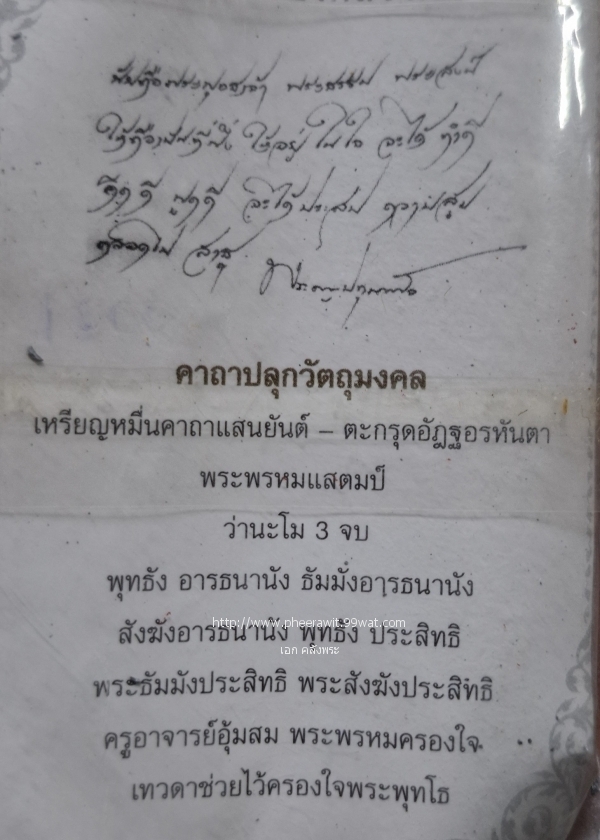 ให้อยู่ในใจ จะได้ ทำดี
คิดดี พูดดี จะได้ประสบ ความสุข
ตลอดไป สาธุ
คาถาปลุกวัตถุมงคล
เหรียญหมื่นคาถาแสนยันต์ – ตะกรุดอัฎฐอรหันตา
พระพรหมแสตมป์
ว่านะโม 3 จบ
พุทธัง อารธนานัง ธัมมั่งอารธนานัง
http://www.pheerawit.99wat.com
สังฆังอารธนานัง พุทธัง ประสิทธิ
เอก คลังพระ
พระธัมมังประสิทธิ พระสังฆังประสิทธิ
ครูอาจารย์อุ้มสม พระพรหมครองใจ
เทวดาช่วยไว้ครองใจพระพุทโธ